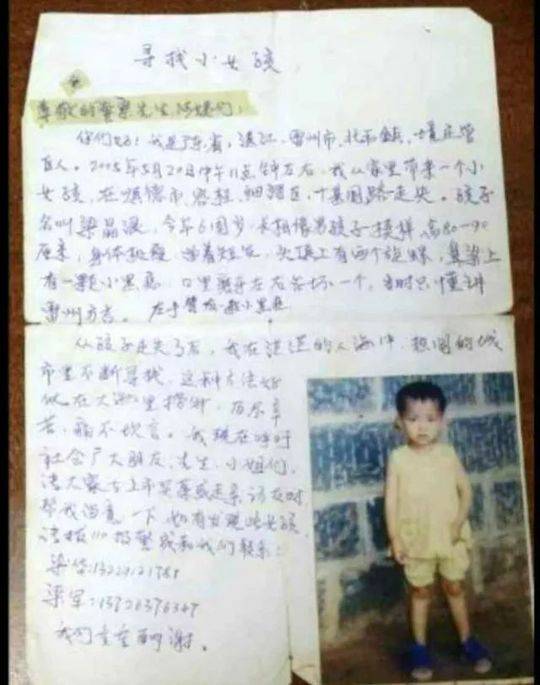 寻找小女孩
尊敬的 先生 们:
你们好!我是广东省,湛江,雷州市,北和镇,
区人。2005年5月20日中午11点钟左右,我从家里带来一个小
女孩,在顺德市,容桂,细滘区,十基围路走失。孩子
名叫梁晶 ,今年6周岁,长相像男孩子模样,高80-90
厘米,身体 瘦,留着短发,头顶上有两个旋螺,鼻梁上
有一颗小黑痣,口里 牙左右各坏一个,当时只懂讲
雷州方言。左手臂有一颗小黑痣
从孩子走失了后,我在茫茫的人海中,热闹的城
市里不断寻找,这种方法好
似在大海里捞针,历尽辛
苦,痛不 言。我现在呼吁
社会广大朋友,先生,小姐们,
请大家在上市买菜或走亲访友时
帮我留意一下,如有发现此女孩
请拨110报警或和我们联系:
梁华:
梁军:
我们 重 谢。